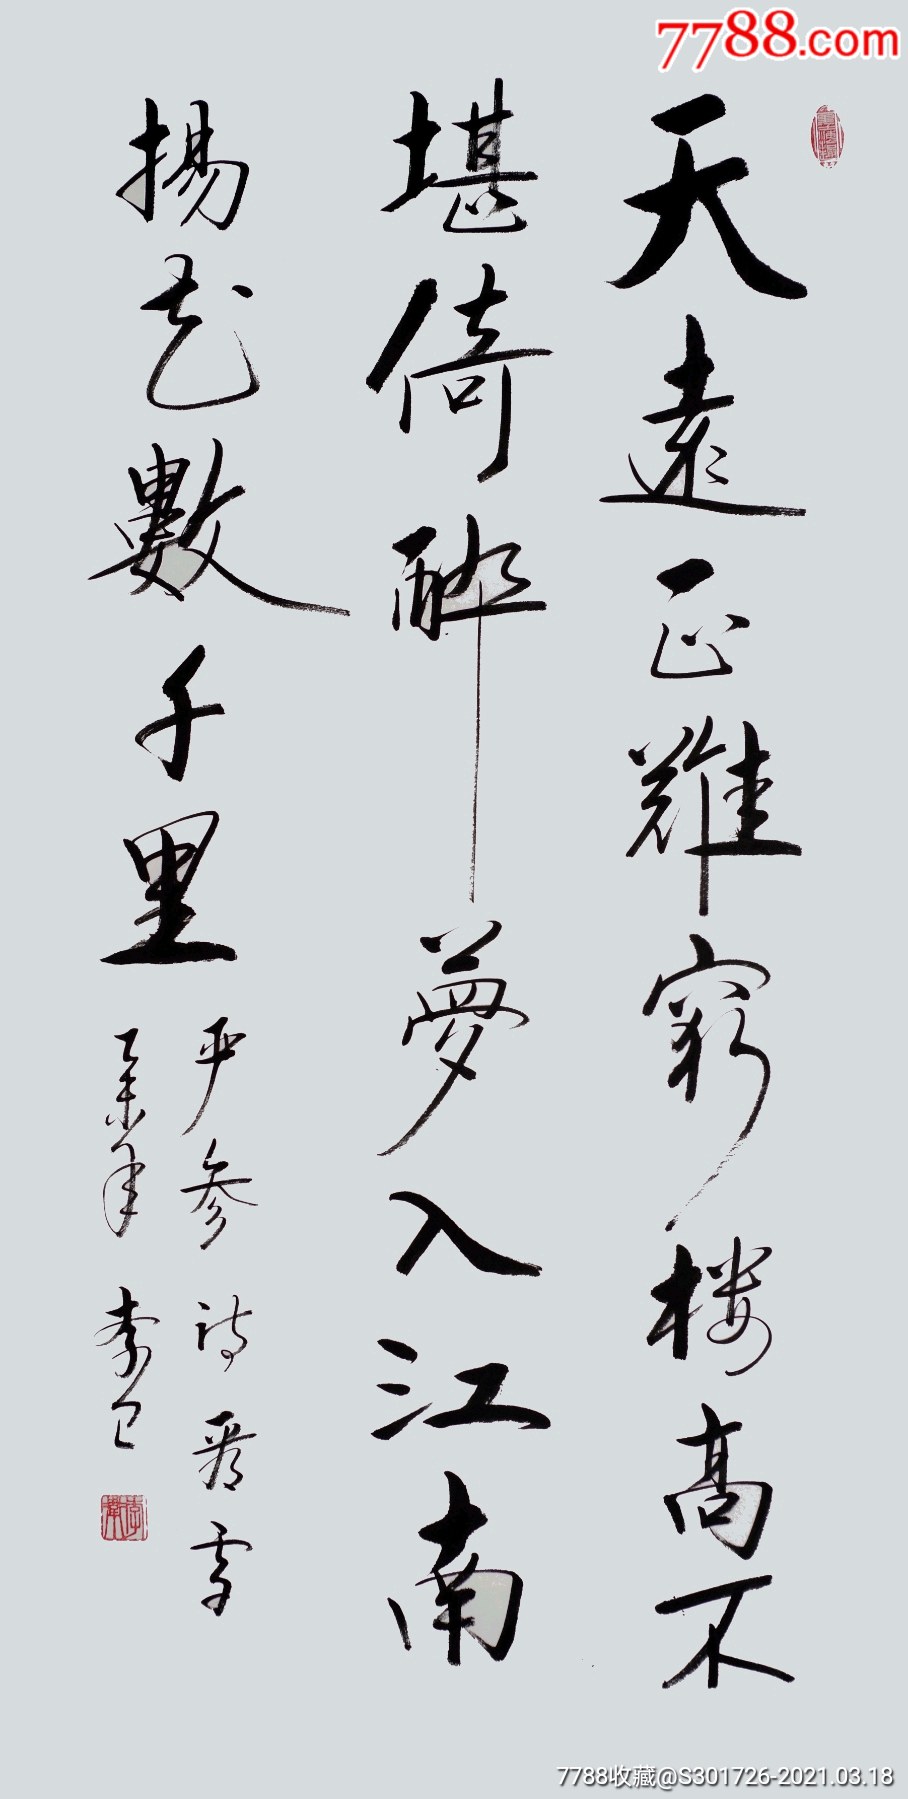 7788.com
天遠正難窮楼高不
堪倚醉夢入江南
揚花數千里
严参诗
李卫
7788收藏@S301726-2021.03.18